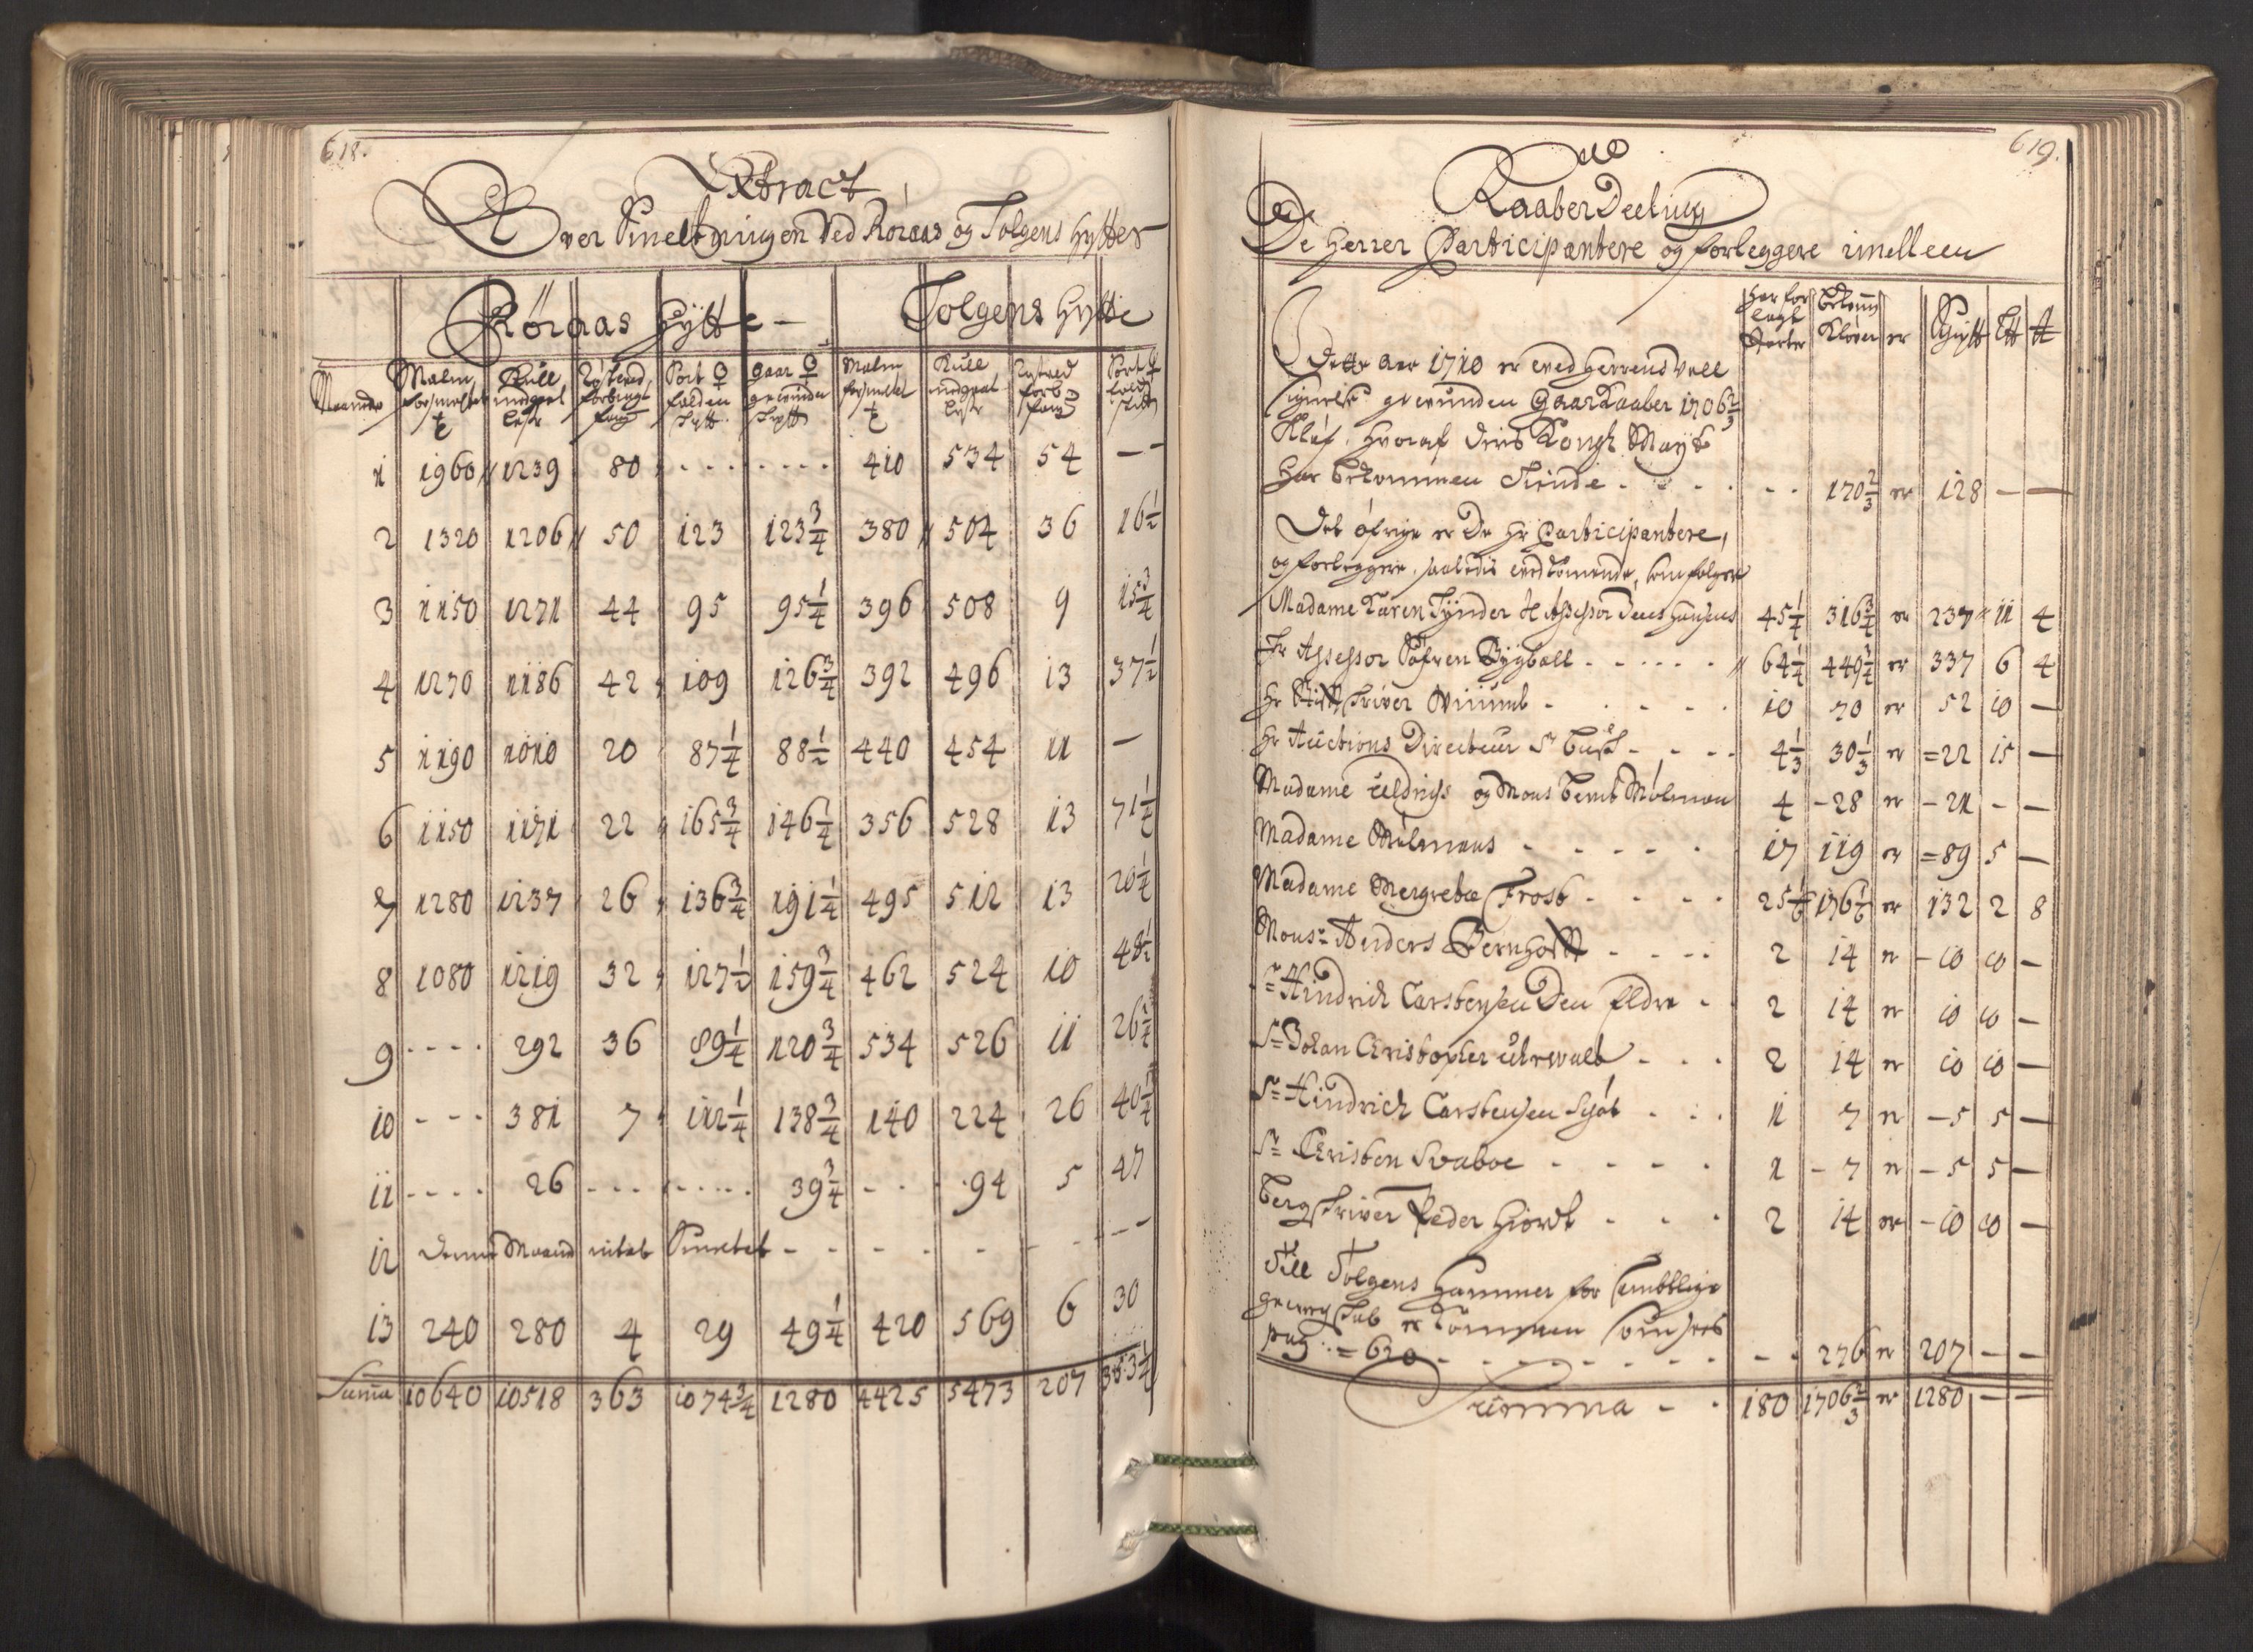 618.
Extract
Over Smeltningen Ved Röraas og Tolgens Hytter
Röraas Hytte - Tolgens Hytte
Maaneder Malm forsmeltet Kull medgaaet lester Röstved forbrugt Sort falden Sk℔ gaar Malm forsmeltet Kull medgaaet lester Röstved forb Sort
1 1960 1239 80 - - - - - - - - 410 534 54 — —
2 1320 1206 50 123 123 3/4 380 504 36 16 1/2
3 1150 1271 44 95 95 1/4 396 508 9 15 3/4
4 1270 1186 42 109 126 3/4 392 496 13 37 1/2
5 1190 1010 20 87 1/4 88 1/2 440 454 11 —
6 1150 1171 22 165 3/4 146 1/4 356 528 13 71 1/4
7 1280 1237 26 136 3/4 191 1/4 495 512 13 20 1/4
8 1080 1219 32 127 1/2 159 3/4 462 524 10 48 1/2
9 - - - - 292 36 89 1/4 120 3/4 534 526 11 26 1/4
10 - - - 381 7 112 1/4 138 3/4 140 224 26 40 1/4
11 - - - - 26 - - - - - - - - 39 3/4 - - - 94 5 47
12 Denne Maaned intet Smeltet - - - - - - - -
13 240 280 4 29 49 1/4 420 569 6 30
Summa 10640 10518 363 1074 3/4 1280 4425 5473 207 353 1/4
619.
Kaaber Deeling
De Herrer Participantere og forleggere imellem
Har forlagt Parter Bekomne Kløver er Sk℔ L℔ ℔
Dette Aar 1710 er ved Herrens Velsignelse gevunden GaarKaaber 1706 2/3
Kløf. Hvoraf Deris Kongl Mayt
Har bekommen Tiende - - - - - - 170 2/3 er 128 — —
Det øfrige er De Hr Participantere,
og forleggere, saaledis vedkomende, som følger
Madame Karen Tynder Sl Assessor Jens Hansens 45 1/4 316 3/4 er 237 11 4
Hr Assessor Söfren Bygball - - - - - 64 1/4 449 3/4 er 337 6 4
Hr skriver - - - - - 10 70 er 52 10 —
Hr Auctions Directeur - - - - 4 1/3 30 1/3 er = 22 15 —
Madame Uldrichs og Mons Bernt Mølman 4 - 28 er - 21 - —
Madame Mølmans - - - - - 17 119 er = 89 5 —
Madame Mergrete Frost - - - - 25 1/6 176 1/6 er 132 2 8
Monsr Anders Bernhoft - - - - 2 14 er - 10 10 —
Sr Hindrich Carstensen Den Eldre - 2 14 er 10 10 —
Sr Johan Christopher Uhrwalt - - - 2 14 er 10 10 —
Sr Hindrich Carstensen - - - 1 7 er - 5 5 —
Sr Christen Svaboe - - - - 1 - 7 er - 5 5 —
Bergskriver Peder Hiort - - - 2 14 er - 10 10 —
Till Tolgens Hammer for
er kommen
pag: = 620 - - - - - - - - - 276 er 207 — —
Summa - - 180 1706 2/3 er 1280 — —